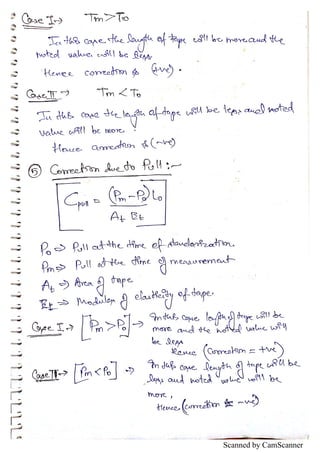 Case I → Tm > To
In this case the length of tape will be more and the
noted value will be less
Hence correction is (+ve).
Case II → Tm < To
In this case the length of tape will be less and noted
value will be more.
Hence correction is (-ve)
⑤ Correction due to Pull :~
Cpull = (Pm - Po) Lo / At Et
Po ⇒ Pull at the time of standardization.
Pm ⇒ Pull at the time of measurement
At ⇒ Area of tape
Et ⇒ Modulus of elasticity of tape.
Case I → [Pm > Po] → In this case length of tape will be
more and the noted value will
be less
Hence (Correction = +ve)
Case II → [Pm < Po] → In this case length of tape will be
less and noted value will be
more,
Hence (correction is -ve)
Scanned by CamScanner